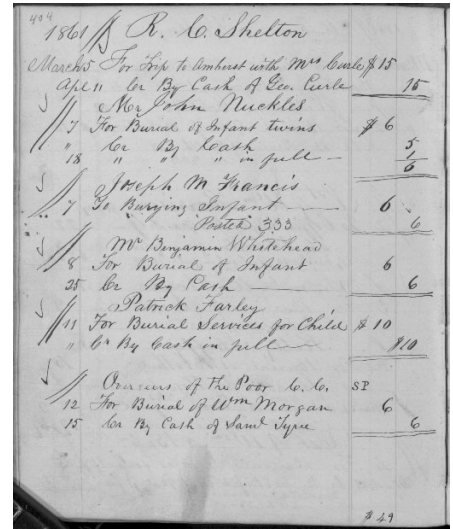 404
1861 R. C. Shelton
March 5 For Trip to Amherst with Mrs Curle $ 15
Apl " Cr By Cash of Geo. Curle 15
Mr John Nuckles
7 For Burial of Infant twins $ 6
" Cr By Cash 5
18 " " " in full 1
6
Joseph M Francis
7 To Burying Infant 6
Posted 333 6
Mr Benjamin Whitehead
8 For Burial of Infant 6
25 Cr By Cash 6
Patrick Farley
11 For Burial Services for Child $ 10
" Cr By Cash in full $10
Overseers of the Poor C. C. SP
12 For Burial of Wm Morgan 6
15 Cr By Cash of Saml Tyree 6
$ 49